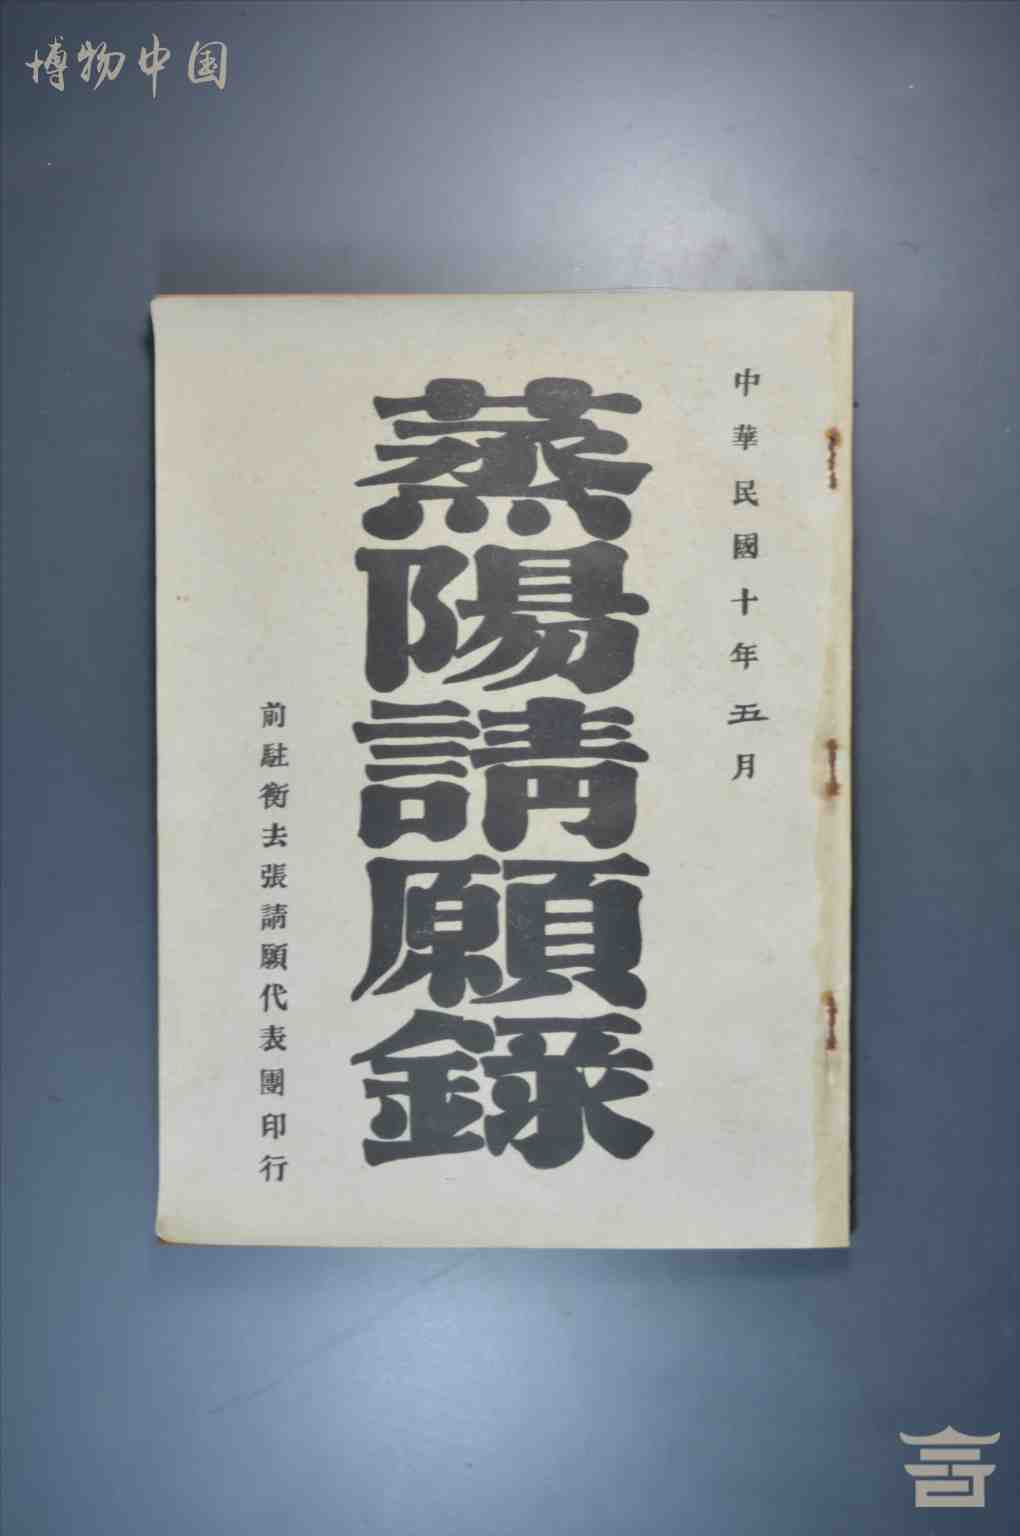 博物中国
中華民國十年五月
蒸陽請願錄
前駐衡去張請願代表團印行